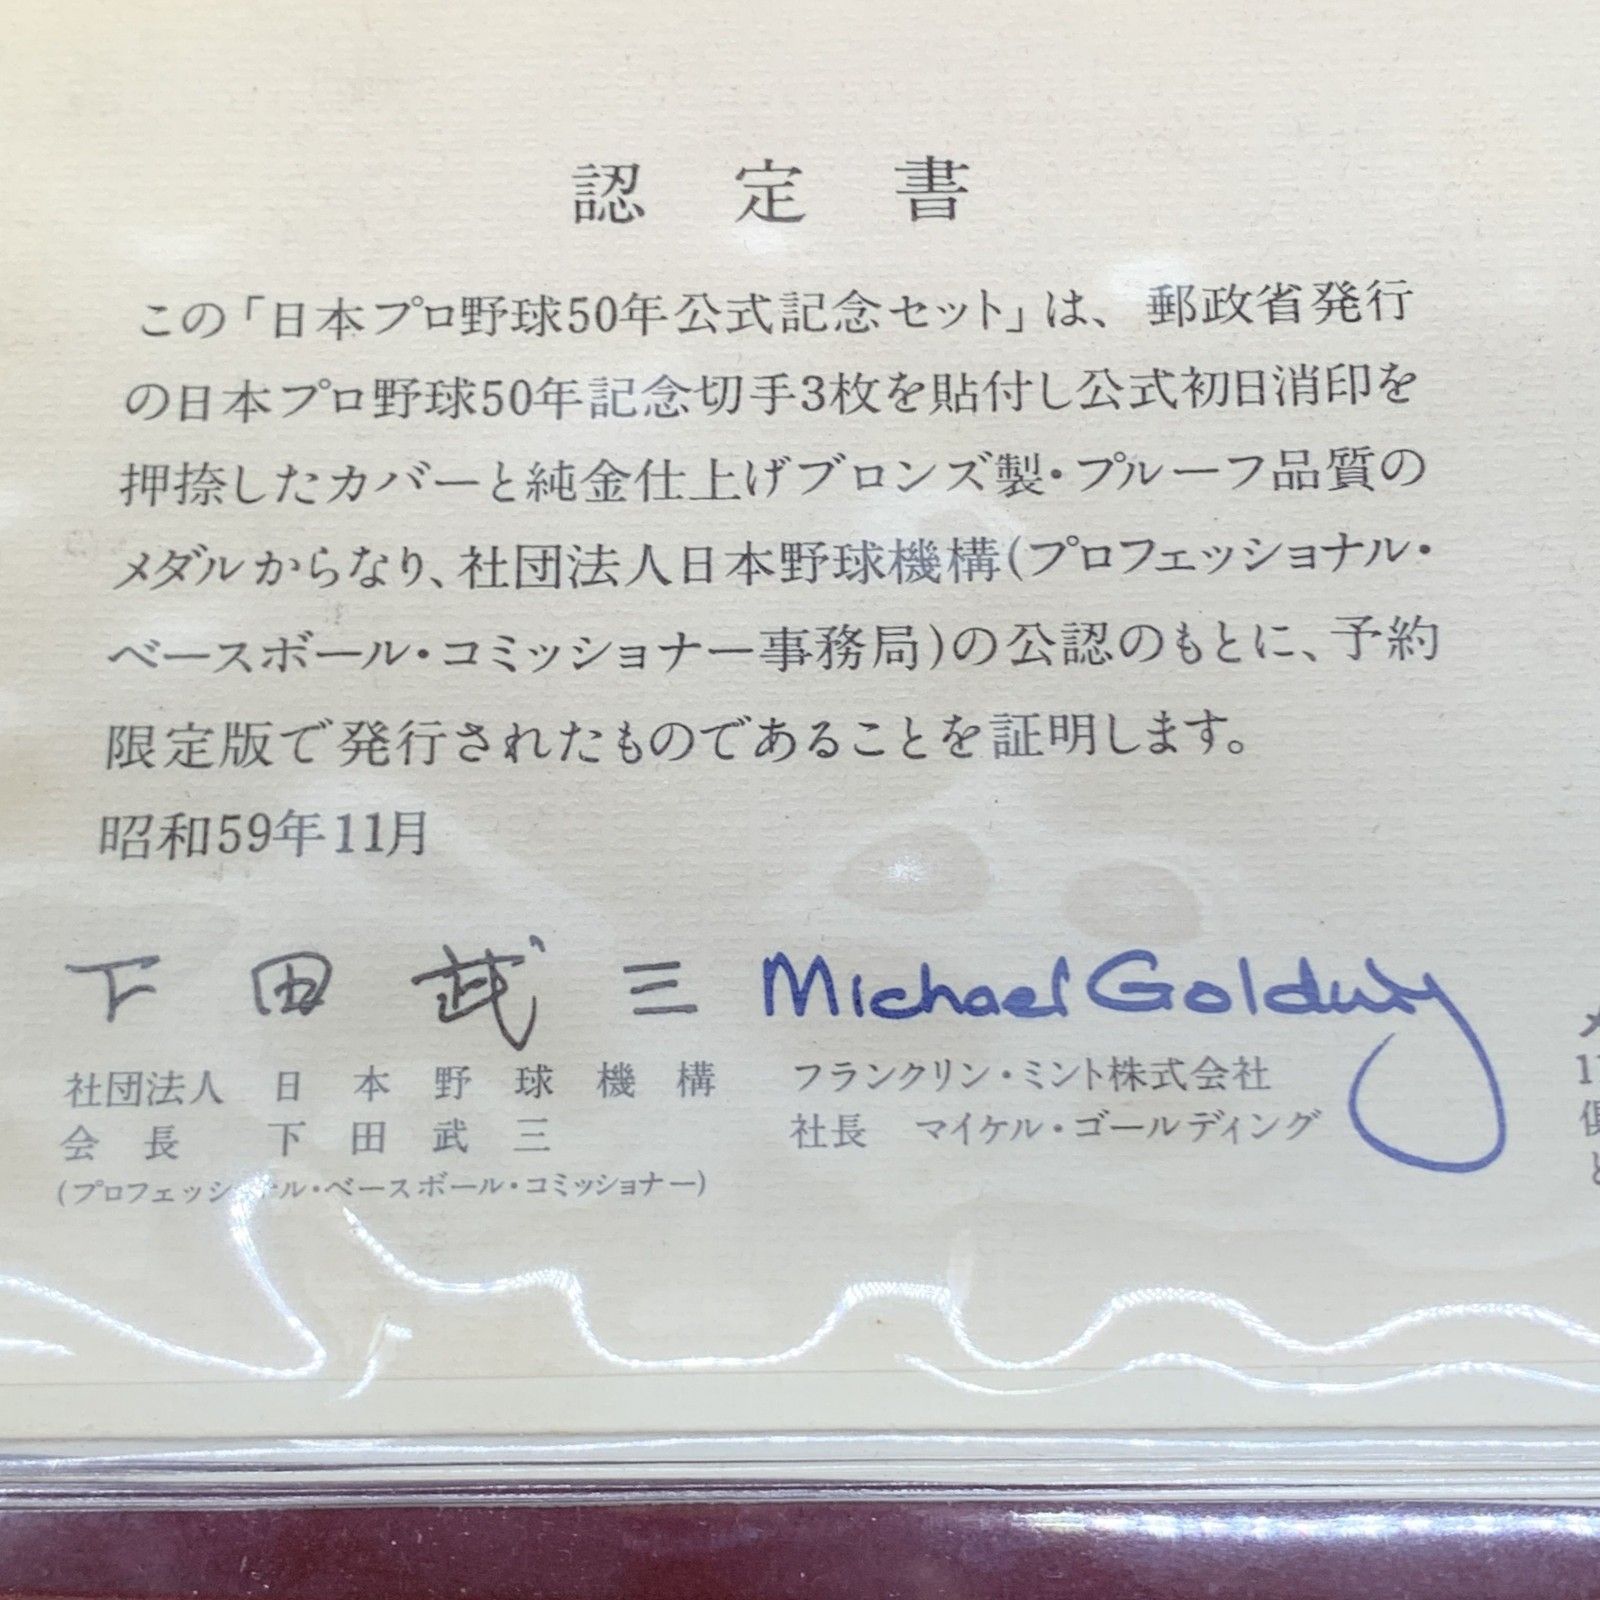 認定書
この「日本プロ野球50年公式記念セット」は、郵政省発行
の日本プロ野球50年記念切手3枚を貼付し公式初日消印を
押捺したカバーと純金仕上げブロンズ製・プルーフ品質の
メダルからなり、社団法人日本野球機構(プロフェッショナル・
ベースボール・コミッショナー事務局)の公認のもとに、予約
限定版で発行されたものであることを証明します。
昭和59年11月
下田武三 Michael Golding
社団法人 日本野球機構
会長 下田武三
(プロフェッショナル・ベースボール・コミッショナー)
フランクリン・ミント株式会社
社長 マイケル・ゴールディング